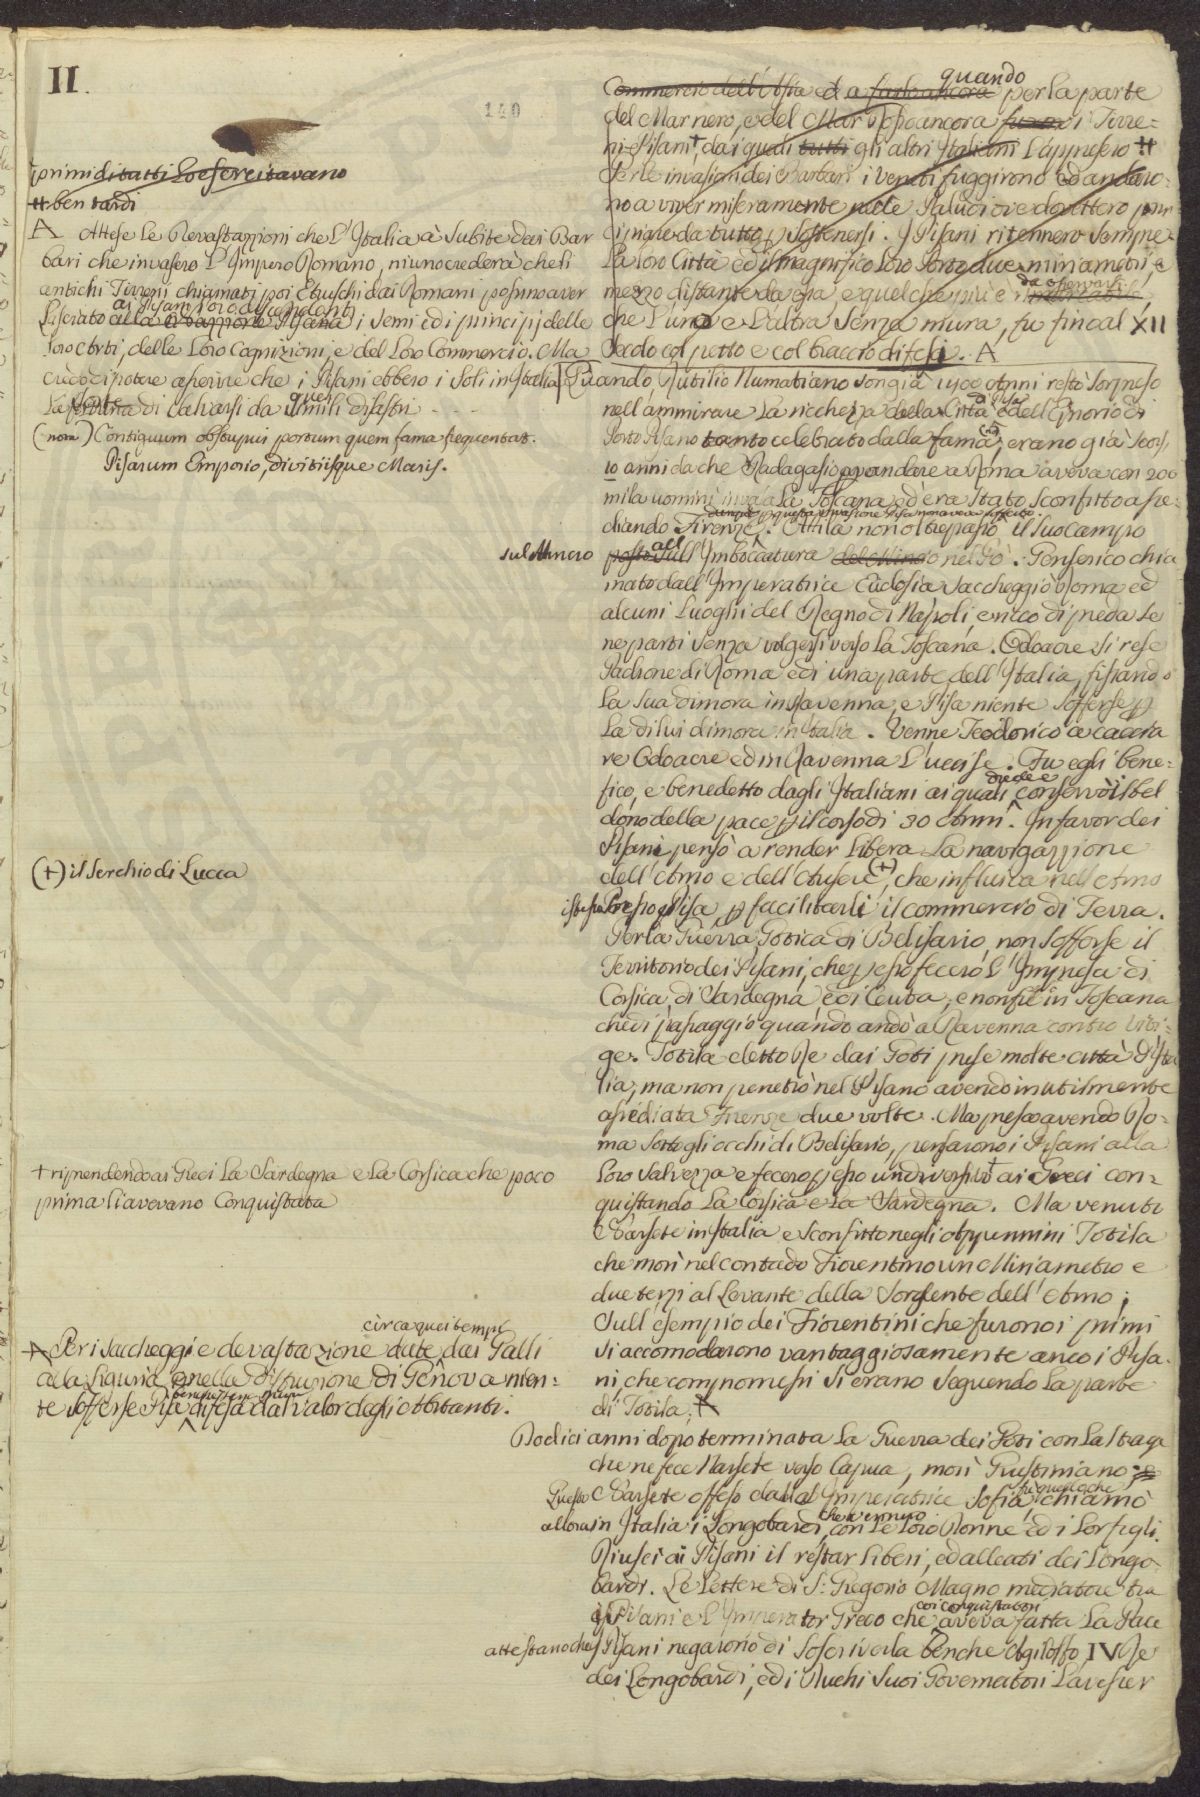 II.
140
primi di tutti lo esercitavano
# ben tardi
A Attese le Devastazzioni che l'Italia à subite dai Bar
bari che invasero l'Impero Romano, niuno crederà che li
antichi Tirreni chiamati poi Etruschi dai Romani possino aver
ai Pisani loro discendenti
lasciato alla Pisana i semi ed i principj delle
loro Arti, delle loro Cognizioni, e del loro Commercio. Ma
credo di potere asserire che i Pisani ebbero i soli in Italia
la sorte fortuna di salvarsi da quei simili disastri
(nota) Contiguum obstupui portum quem fama frequentat.
Pisarum Emporio, divitiisque Maris.
(+) il Serchio di Lucca
+ riprendendo ai Greci la Sardegna e la Corsica che poco
prima li avevano Conquistata
circa quei tempi
A Per i saccheggi e devastazione date dai Galli
alla Liguria e nella distruzione di Genova nien-
te sofferse Pisa difesa dal valor degli Abitanti.
quando
Commercio dell'Asia ed a farlo ancora per la parte
del Mar nero, e del Mar Rosso ancora furon i Tirre=
ni Pisani+, dai quali tutti gli altri Italiani l'appresero #
Per le invasioni dei Barbari i Veneti fuggirono ed andaro-
no a viver miseramente nelle Paludi ove dovettero prin
cipiare da tutto p sostenersi. I Pisani ritennero sempre
la loro Città ed il magnifico loro Porto due miriametri, e
da osservarsi
mezzo distante da essa, e quel che più è
che l'uno e l'altra senza mura, fu fin al XII
Secolo col petto e col braccio difesi. A
Quando Rutilio Numatiano son già 1400 Anni restò sorpreso
nell'ammirare la ricchezza della Città di Pisa e dell'Emporio di
Porto Pisano tanto celebrato dalla fama, erano già scorsi
10 anni da che Radagasio p andare a Roma aveva con 200
mila uomini invasa la Toscana ed era stato sconfitto asse-
diando Firenze. Attila non oltrepassò il suo campo
sul Mincio posto all' Imboccatura del Mincio nel Pò. Genserico chia
mato dall'Imperatrice Eudosia saccheggiò Roma ed
alcuni luoghi del Regno di Napoli, e ricco di preda se
ne partì senza volgersi verso la Toscana. Odoacre si rese
Padrone di Roma e di una parte dell'Italia, fissando
la sua dimora in Ravenna, e Pisa niente sofferse p
la di lui dimora in Italia. Venne Teodorico a caccia
re Odoacre ed in Ravenna l'uccise. Fu egli bene=
diede e
fico, e benedetto dagli Italiani ai quali conservò il bel
dono della pace p il corso di 30 Anni. In favor dei
Pisani pensò a render libera la navigazzione
dell'Arno e dell'Ausere (+), che influiva nell'Arno
istesso presso Pisa, p facilitarli il commercio di Terra.
Per la Guerra Gotica di Belisario, non sofferse il
Territorio dei Pisani, che p esso fecero l'Impresa di
Corsica, di Sardegna e di Ceuta, e non fu in Toscana
che di passaggio quando andò a Ravenna contro Viti=
ge. Totila eletto Re dai Goti prese molte città d'Ita
lia, ma non penetrò nel Pisano avendo inutilmente
assediata Firenze due volte. Ma preso avendo Ro=
ma sotto gli occhi di Belisario, pensarono i Pisani alla
loro salvezza e fecero p esso un diversivo + ai Greci con=
quistando la Corsica e la Sardegna. Ma venuto
Narsete in Italia e sconfitto negli Appennini Totila
che morì nel contado Fiorentino un Miriametro e
due terzi al Levante della Sorgente dell'Arno;
Sull'esempio dei Fiorentini che furono i primi
si accomodarono vantaggiosamente anco i Pisa=
ni, che compromessi si erano seguendo la parte
di Totila. A
Dodici anni dopo terminata la Guerra dei Goti con la strage
che ne fece Narsete verso Capua, morì Giustiniano; e
fù quello che
Questo Narsete offeso dall'Imperatrice Sofia, chiamò
che vennero
allora in Italia i Longobardi, con le loro Donne ed i lor figli.
Riuscì ai Pisani il restar liberi, ed alleati dei Longo-
bardi. Le lettere di S: Gregorio Magno mediatore tra
coi conquistatori
i Pisani e l'Imperator Greco che aveva fatta la Pace
attestano che i Pisani negarono di soscriverla benche Agiloffo IV Re
dei Longobardi, ed i Duchi suoi Governatori l'avesser